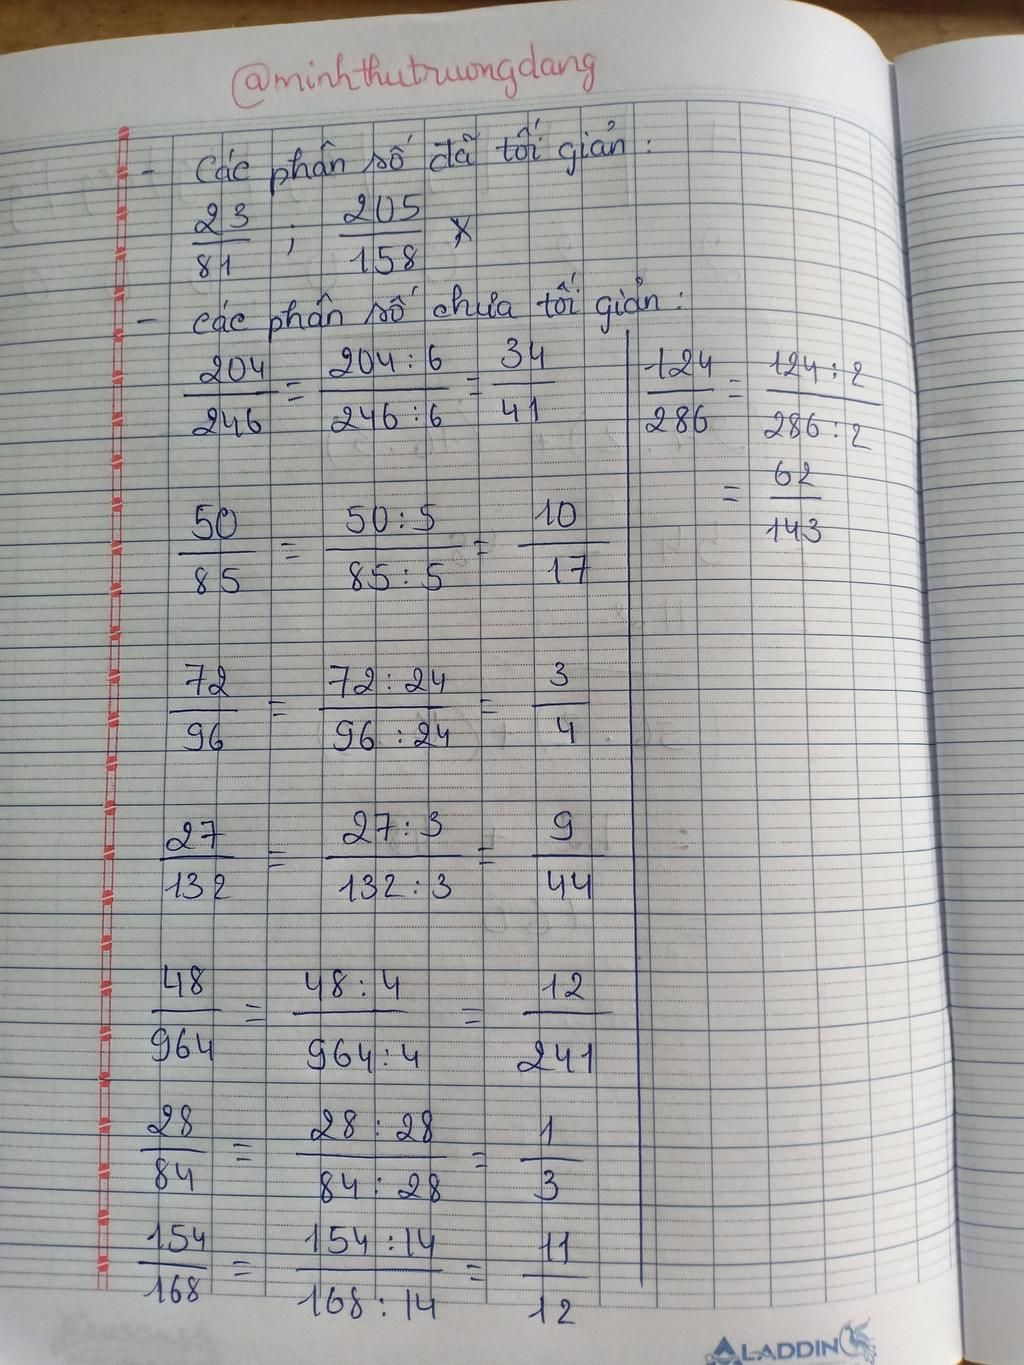 @minhthutruongdang
- Các phân số đã tối giản :
23/81 ; 205/158 x
- Các phân số chưa tối giản :
204/246 = 204 : 6/246 : 6 = 34/41
50/85 = 50 : 5/85 : 5 = 10/17
72/96 = 72 : 24/96 : 24 = 3/4
27/132 = 27 : 3/132 : 3 = 9/44
48/964 = 48 : 4/964 : 4 = 12/241
28/84 = 28 : 28/84 : 28 = 1/3
154/168 = 154 : 14/168 : 14 = 11/12
124/286 = 124 : 2/286 : 2
= 62/143
ALADDIN